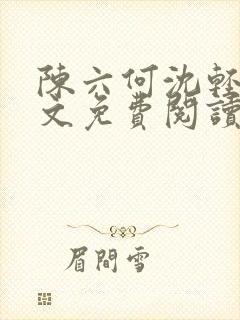 陳六何沈輕
文免費閱讀
眉間雪